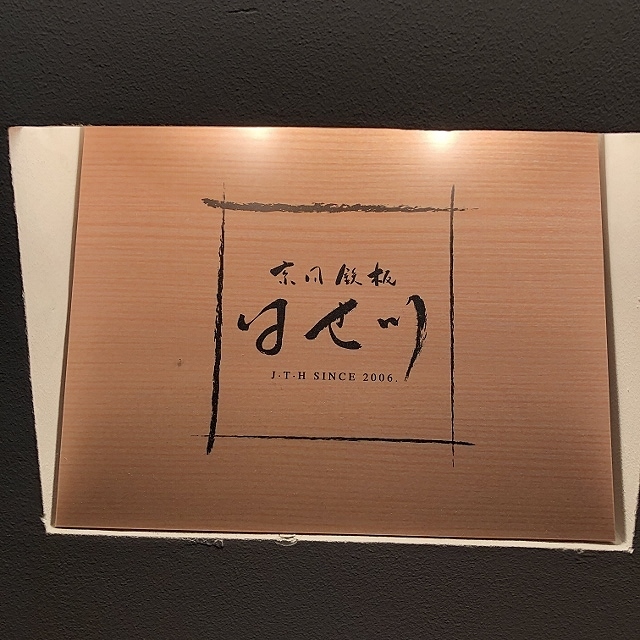 京月鉄板
はせ川
J·T·H SINCE 2006.